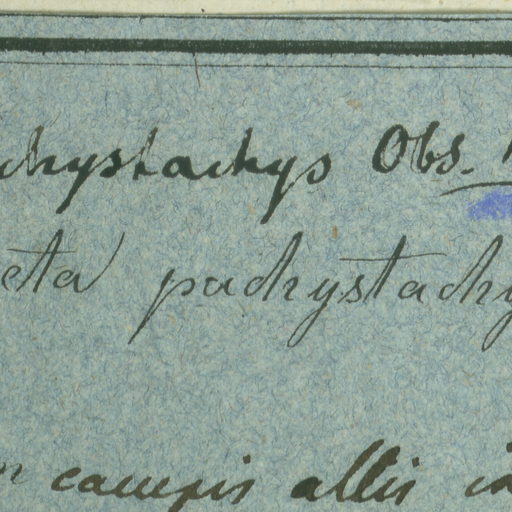 chystachys Obs.
eta pachystachy
campis allis